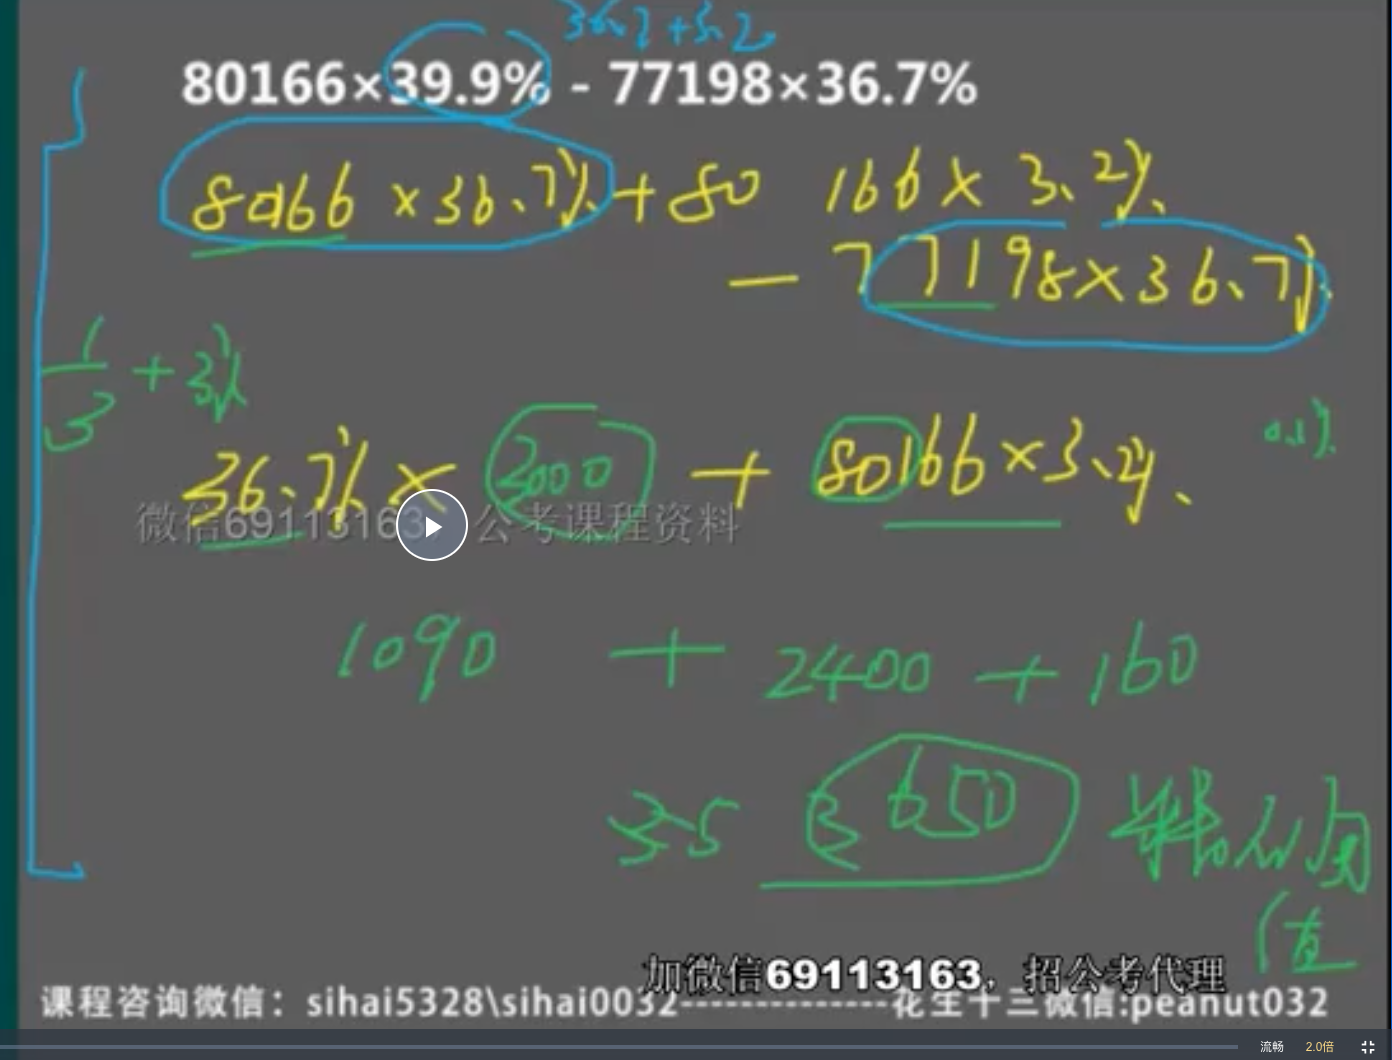 36.7+3.2
80166×39.9% - 77198×36.7%
80166×36.7%+80 166×3.2%
- 77198×36.7%
1/3+3%
0.1%
36.7%×3000 + 80166×3.2%
微信69113163 公考课程资料
1090 + 2400 + 160
35 3650
值
加微信69113163，招公考代理
课程咨询微信：sihai5328\sihai0032--------------花生十三微信:peanut032
流畅 2.0倍